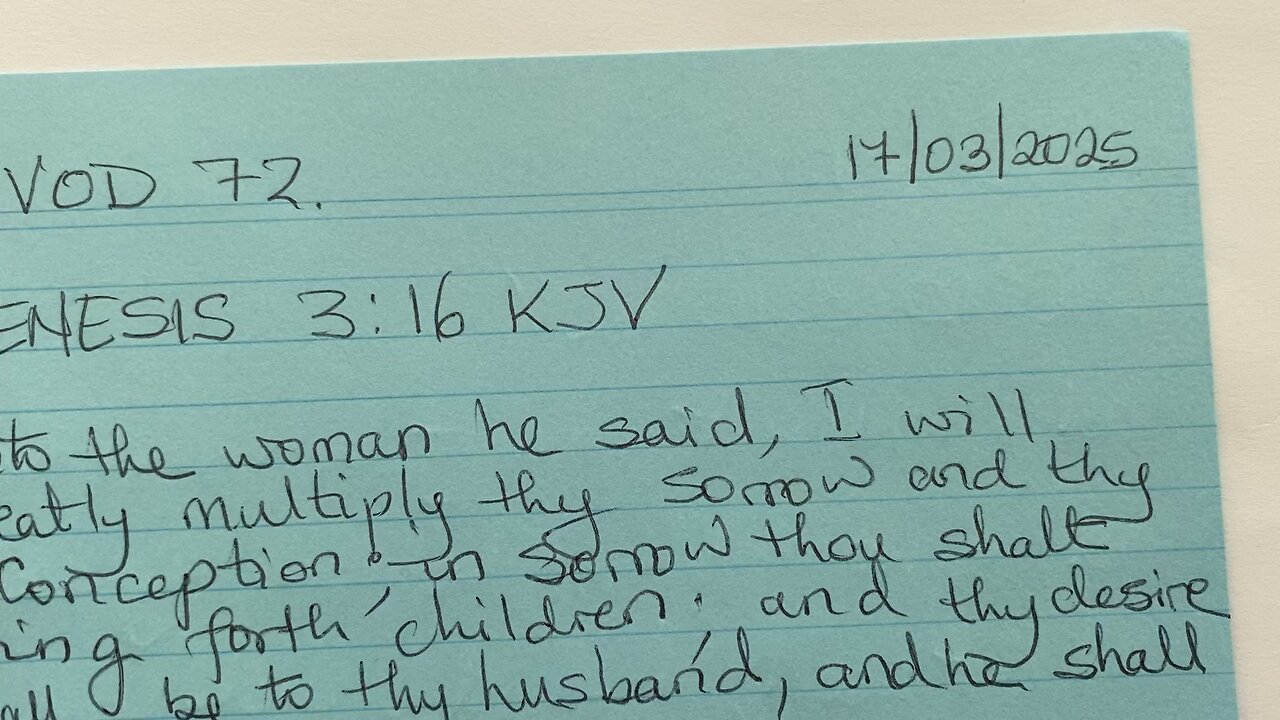 VOD 72.
17/03/2025
ENESIS 3:16 KJV
to the woman he said, I will
eatly multiply thy sorrow and thy
Conception; in sorrow thou shalt
ing forth children; and thy desire
all be to thy husband, and he shall